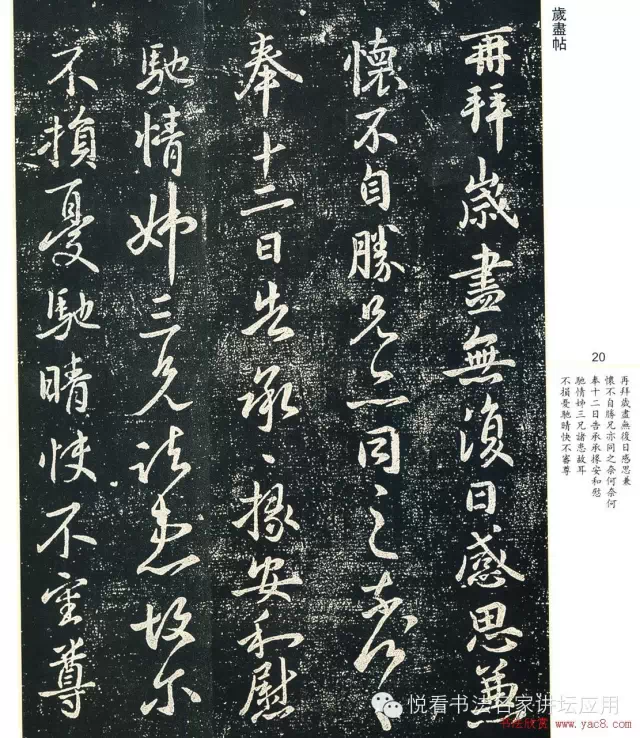 歲盡帖
再拜歲盡無復日感思兼
懷不自勝兄亦同之奈何〻
奉十二日告承〻掾安和慰
馳情姊三兄諸患故尔
不損憂馳晴快不審尊
20
再拜歲盡無復日感思兼
懷不自勝兄亦同之奈何奈何
奉十二日告承承掾安和慰
馳情姊三兄諸患故耳
不損憂馳晴快不審尊
悦看书法名家讲坛应用
书法欣赏 www.yac8.com